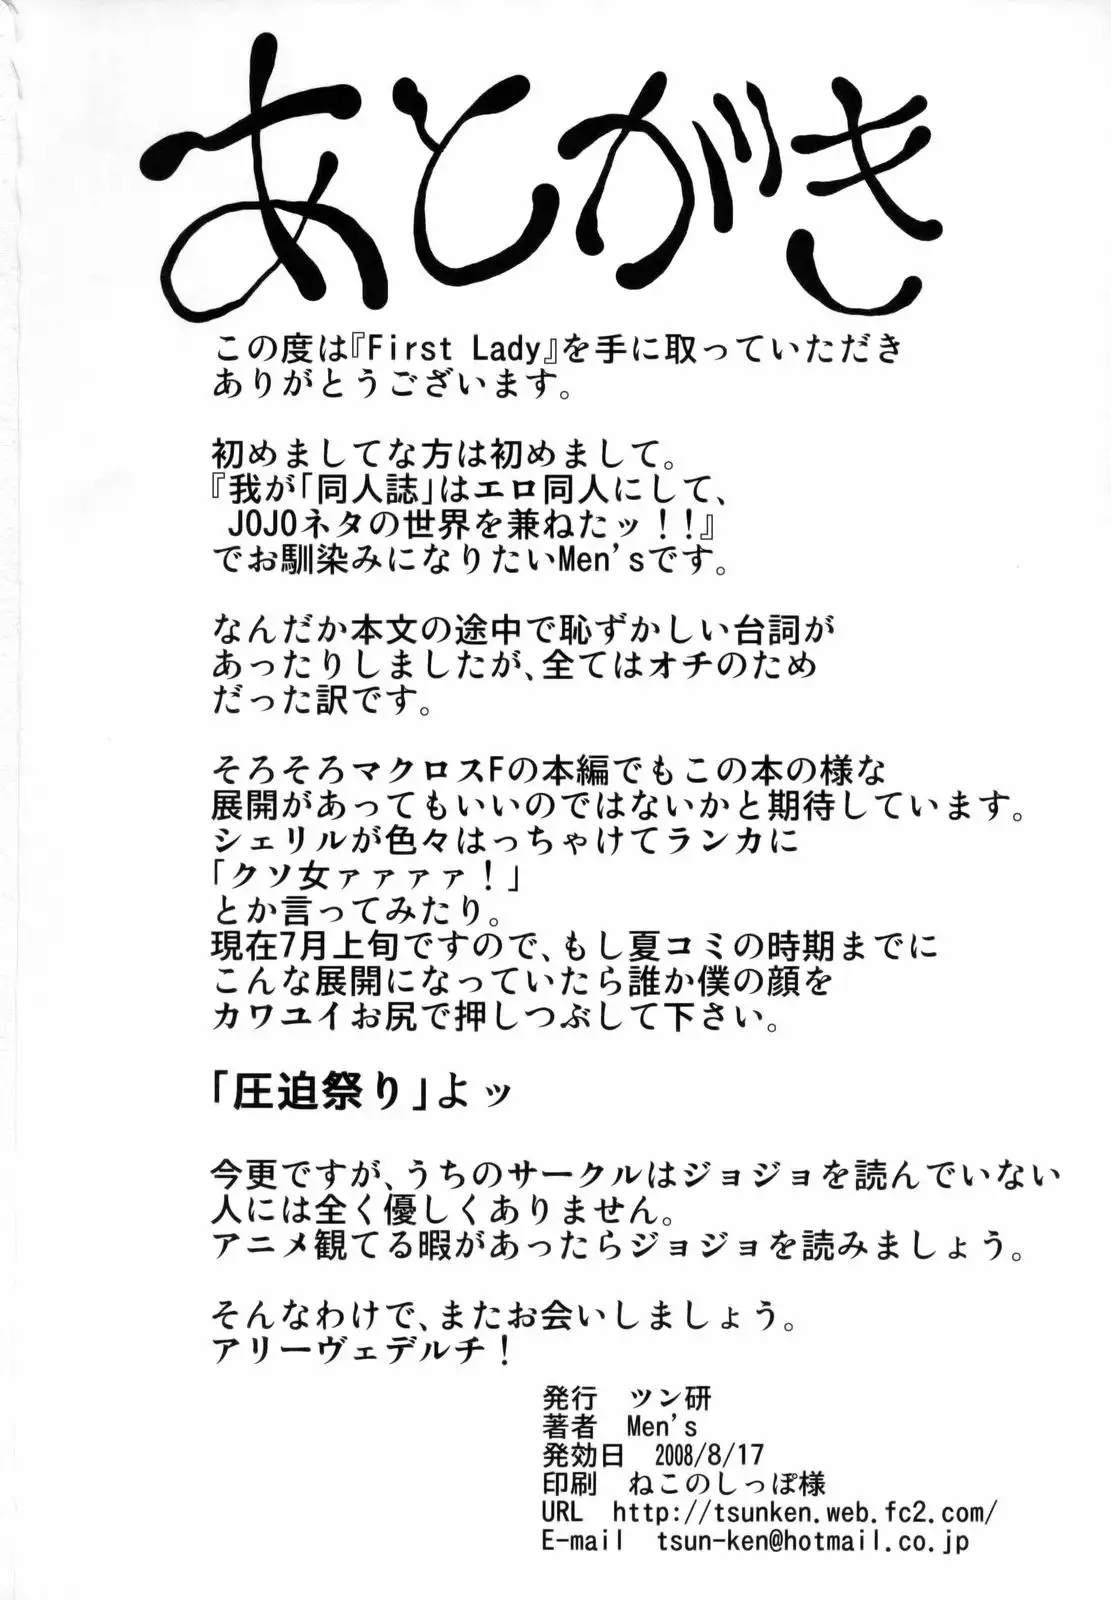 あとがき
この度は『First Lady』を手に取っていただき
ありがとうございます。
初めましてな方は初めまして。
『我が「同人誌」はエロ同人にして、
JOJOネタの世界を兼ねたッ！！』
でお馴染みになりたいMen'sです。
なんだか本文の途中で恥ずかしい台詞が
あったりしましたが、全てはオチのため
だった訳です。
そろそろマクロスFの本編でもこの本の様な
展開があってもいいのではないかと期待しています。
シェリルが色々はっちゃけてランカに
「クソ女ァァァァ！」
とか言ってみたり。
現在7月上旬ですので、もし夏コミの時期までに
こんな展開になっていたら誰か僕の顔を
カワユイお尻で押しつぶして下さい。
「圧迫祭り」よッ
今更ですが、うちのサークルはジョジョを読んでいない
人には全く優しくありません。
アニメ観てる暇があったらジョジョを読みましょう。
そんなわけで、またお会いしましょう。
アリーヴェデルチ！
発行　ツン研
著者　Men's
発効日　2008/8/17
印刷　ねこのしっぽ様
URL　http://tsunken.web.fc2.com/
E-mail　tsun-ken@hotmail.co.jp